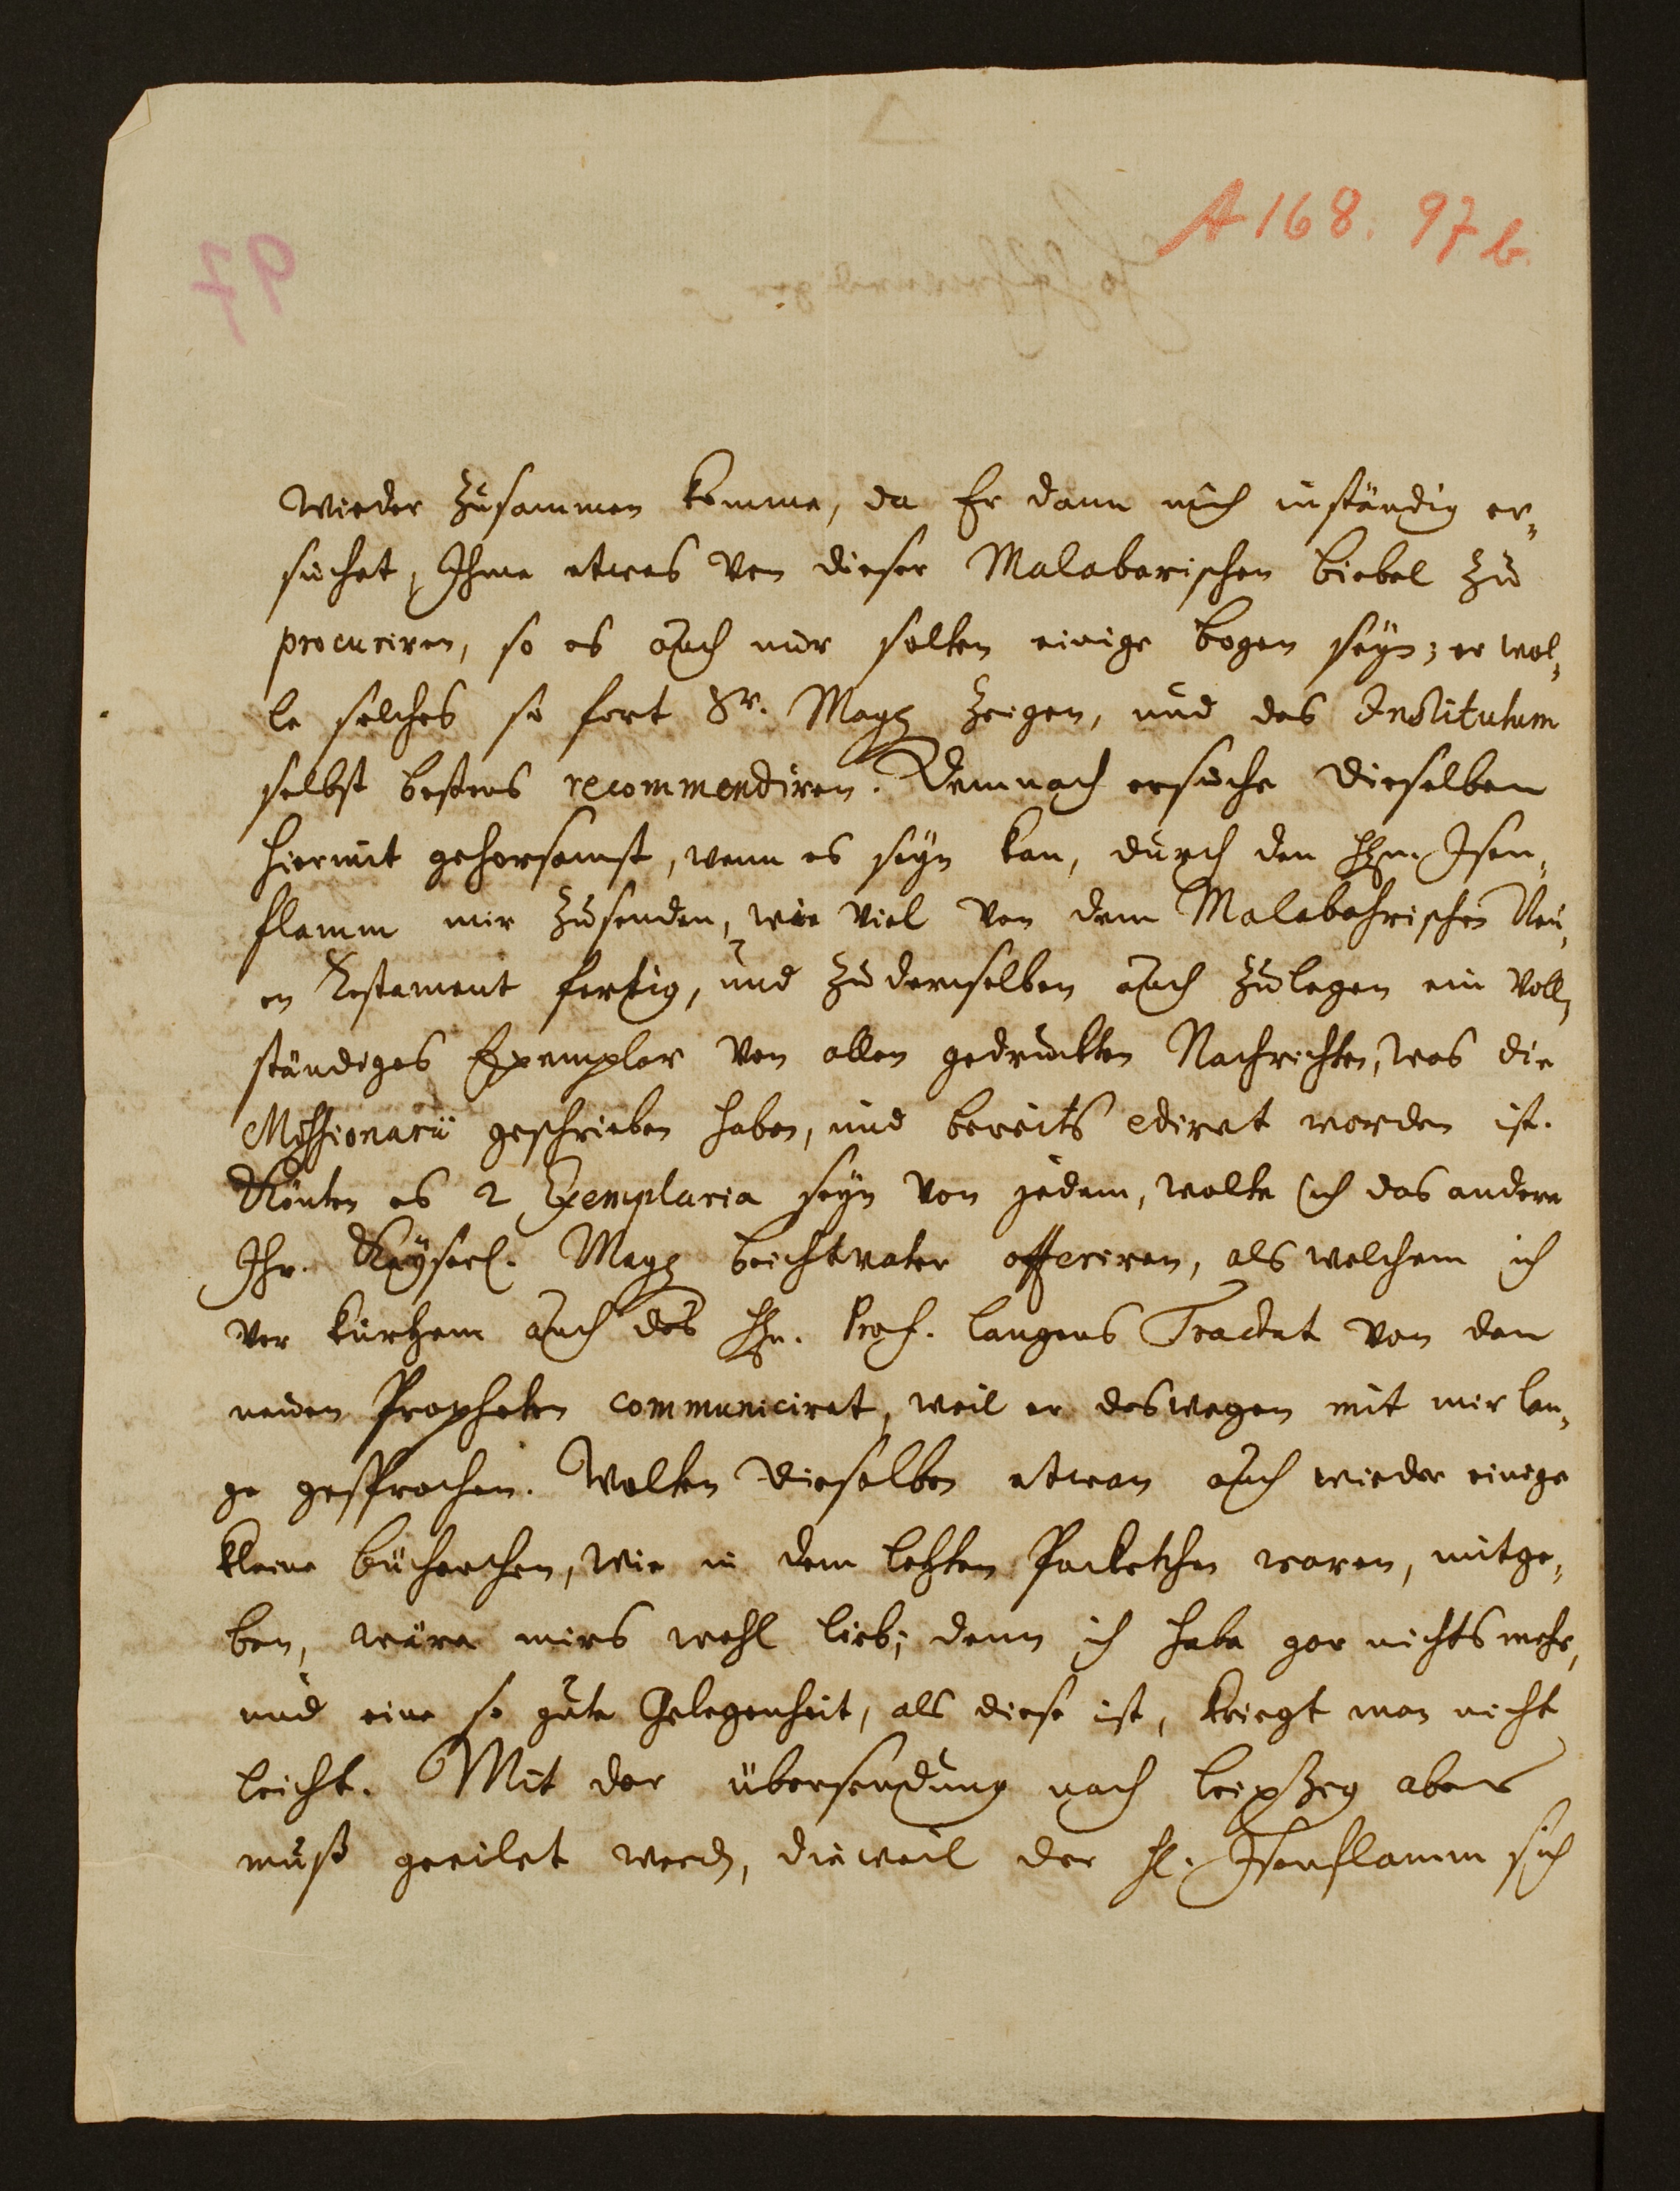 A 168. 97 b.
97
wieder zusammen komme, da Er dann mich inständig er-
suchet, Ihme etwas von dieser Malabarischen Biebel zu
procuriren, so es auch nur solten einige bogen seyn; er wol-
le solches so fort Sr. Mayt zeigen, und das Institutum
selbst bestens recommendiren. Demnach ersuche dieselben
hiermit gehorsamst, wenn es seyn kan, durch den Hhn. Isen-
flamm mir zusenden, wie viel von dem Malabahrischen Neu-
en Testament fertig, und zu demselben auch zulegen ein voll-
ständiges Exemplar von allen gedruckten Nachrichten, was die
Missionarii geschrieben haben, und bereits ediret worden ist.
Könten es 2 Exemplaria seyn von jedem, wolte ich das andere
Ihr. Kayserl. Mayt beichtvater offeriren, als welchem ich
vor kurtzem auch des Hhn. Prof. Langens Tractat von den
neuen Propheten communiciret, weil er deswegen mit mir lan-
ge gesprochen. Wolten dieselben etwan auch wieder einige
kleine bücherchen, wie in dem letzten Packetchen waren, mitge-
ben, wäre mirs wohl lieb; denn ich habe gar nichts mehr,
und eine so gute Gelegenheit, als diese ist, kriegt man nicht
leicht. Mit der übersendung nach Leipzig aber
muß geeilet werden, dieweil der H. Isenflamm sich